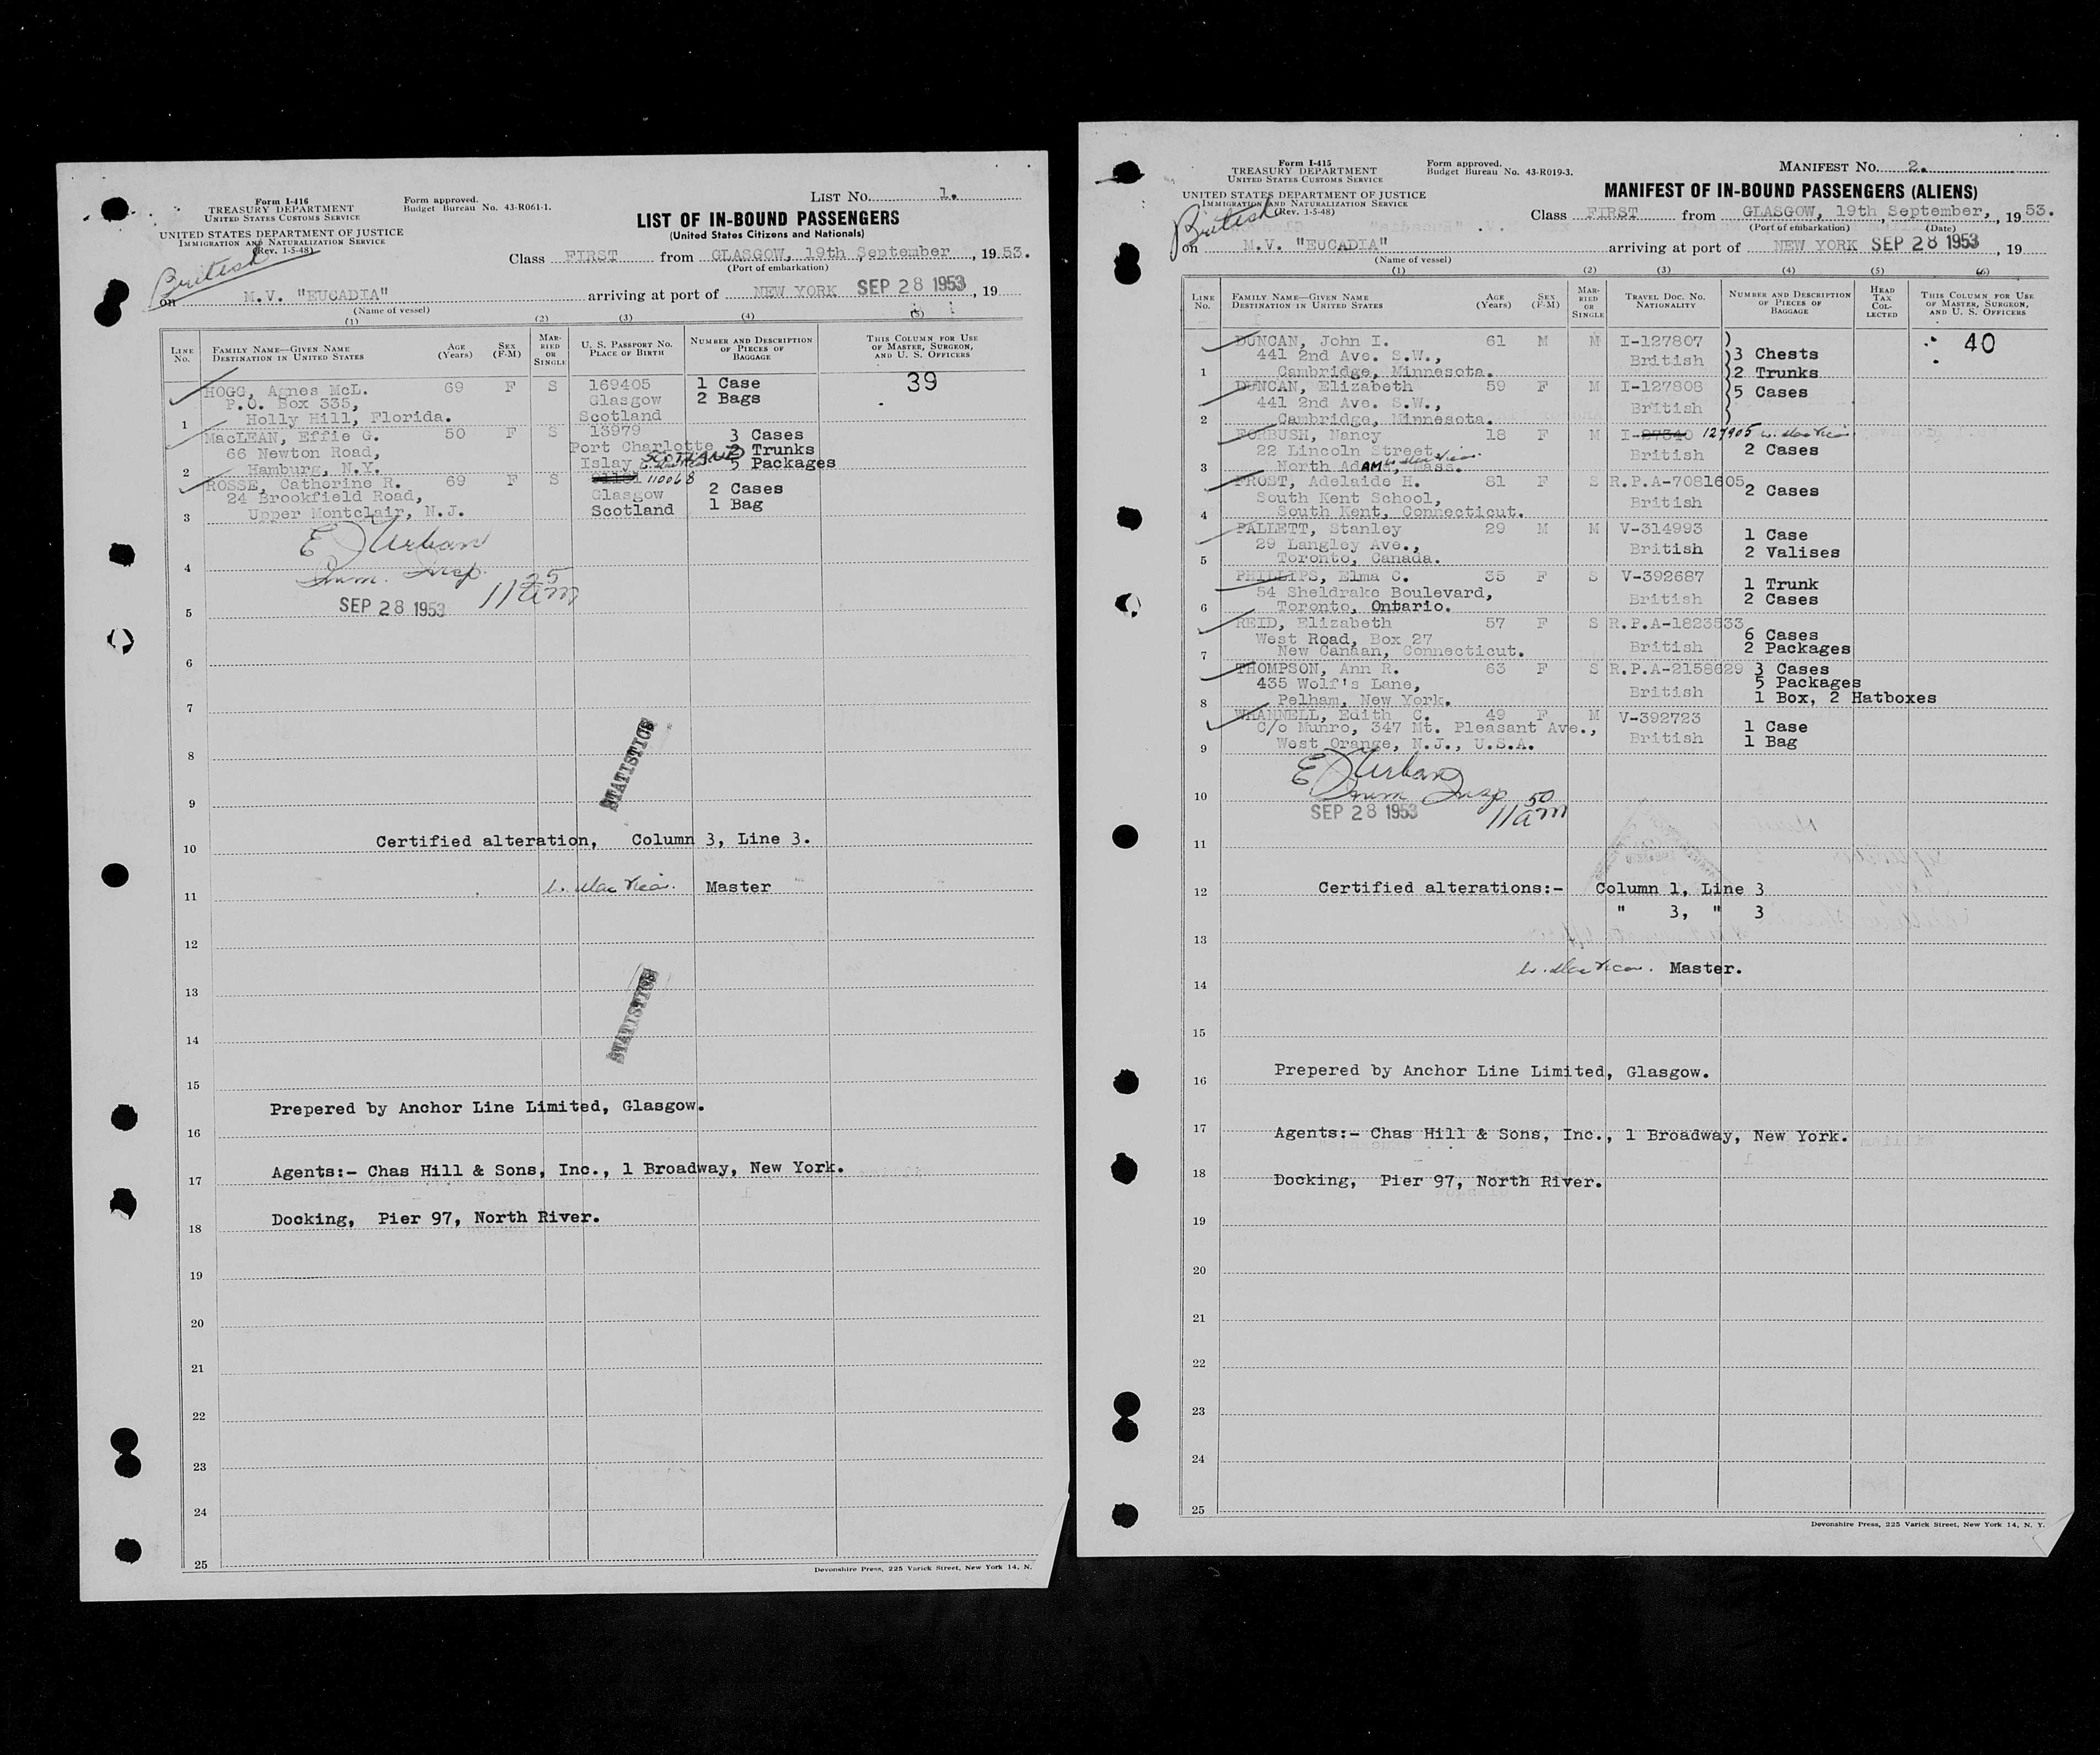 Form I-416
TREASURY DEPARTMENT
UNITED STATES CUSTOMS SERVICE
Form approved.
Budget Bureau No. 43-R061-1.
LIST No. 1.
UNITED STATES DEPARTMENT OF JUSTICE
IMMIGRATION AND NATURALIZATION SERVICE
(Rev. 1-5-48)
LIST OF IN-BOUND PASSENGERS
(United States Citizens and Nationals)
British
Class FIRST from GLASGOW, 19th September, 1953.
(Port of embarkation)
on M.V. "EUCADIA" arriving at port of NEW YORK SEP 28 1953, 19
(Name of vessel)
(1) (2) (3) (4) (5)
LINE No. FAMILY NAME—GIVEN NAME DESTINATION IN UNITED STATES AGE (Years) SEX (F-M) MARRIED OR SINGLE U. S. PASSPORT No. PLACE OF BIRTH NUMBER AND DESCRIPTION OF PIECES OF BAGGAGE THIS COLUMN FOR USE OF MASTER, SURGEON, AND U. S. OFFICERS
HOGG, Agnes McL. 69 F S 169405 1 Case 39
P.O. Box 335, Glasgow 2 Bags
1 Holly Hill, Florida. Scotland
MacLEAN, Effie G. 50 F S 13979 3 Cases
66 Newton Road, Port Charlotte 2 Trunks
2 Hamburg, N.Y. Islay SCOTLAND 5 Packages
ROSSE, Catherine R. 69 F S 110068
24 Brookfield Road, Glasgow 2 Cases
3 Upper Montclair, N.J. Scotland 1 Bag
E J Urban
4 Imm. Insp.
5 SEP 28 1953 11 25 am
6
7
8 STATISTICS
9
10 Certified alteration, Column 3, Line 3.
11 Master
12
13
14 STATISTICS
15
Prepered by Anchor Line Limited, Glasgow.
16
17 Agents:- Chas Hill & Sons, Inc., 1 Broadway, New York.
18 Docking, Pier 97, North River.
19
20
21
22
23
24
25
Devonshire Press, 225 Varick Street, New York 14, N.
Form I-415
TREASURY DEPARTMENT
UNITED STATES CUSTOMS SERVICE
Form approved.
Budget Bureau No. 43-R019-3.
MANIFEST No. 2.
UNITED STATES DEPARTMENT OF JUSTICE
IMMIGRATION AND NATURALIZATION SERVICE
(Rev. 1-5-48)
MANIFEST OF IN-BOUND PASSENGERS (ALIENS)
British
Class FIRST from GLASGOW, 19th September, 1953.
(Port of embarkation) (Date)
on M.V. "EUCADIA" arriving at port of NEW YORK SEP 28 1953, 19
(Name of vessel)
(1) (2) (3) (4) (5) (6)
LINE No. FAMILY NAME—GIVEN NAME DESTINATION IN UNITED STATES AGE (Years) SEX (F-M) MARRIED OR SINGLE TRAVEL DOC. No. NATIONALITY NUMBER AND DESCRIPTION OF PIECES OF BAGGAGE HEAD TAX COLLECTED THIS COLUMN FOR USE OF MASTER, SURGEON, AND U. S. OFFICERS
DUNCAN, John I. 61 M M I-127807 ) 40
441 2nd Ave. S.W., British )3 Chests
1 Cambridge, Minnesota. )2 Trunks
DUNCAN, Elizabeth 59 F M I-127808 )5 Cases
441 2nd Ave. S.W., British )
2 Cambridge, Minnesota. )
FORBUSH, Nancy 18 F M I-27340 127905
22 Lincoln Street, British 2 Cases
3 North Adams, Mass.
FROST, Adelaide H. 81 F S R.P.A-7081605 2 Cases
South Kent School, British
4 South Kent, Connecticut.
PALLETT, Stanley 29 M M V-314993 1 Case
29 Langley Ave., British 2 Valises
5 Toronto, Canada.
PHILLIPS, Elma C. 35 F S V-392687 1 Trunk
54 Sheldrake Boulevard, British 2 Cases
6 Toronto, Ontario.
REID, Elizabeth 57 F S R.P.A-1823533 6 Cases
West Road, Box 27 British 2 Packages
7 New Canaan, Connecticut.
THOMPSON, Ann R. 63 F S R.P.A-2158629 3 Cases
435 Wolf's Lane, British 5 Packages
8 Pelham, New York. 1 Box, 2 Hatboxes
WHANNELL, Edith C. 49 F M V-392723 1 Case
C/o Munro, 347 Mt. Pleasant Ave., British 1 Bag
9 West Orange, N.J., U.S.A.
E J Urban
10 Imm Insp
SEP 28 1953 11 50 am
11
12 Certified alterations:- Column 1, Line 3
" 3, " 3
13
Master.
14
15
16 Prepered by Anchor Line Limited, Glasgow.
17 Agents:- Chas Hill & Sons, Inc., 1 Broadway, New York.
18 Docking, Pier 97, North River.
19
20
21
22
23
24
25
Devonshire Press, 225 Varick Street, New York 14, N. Y.